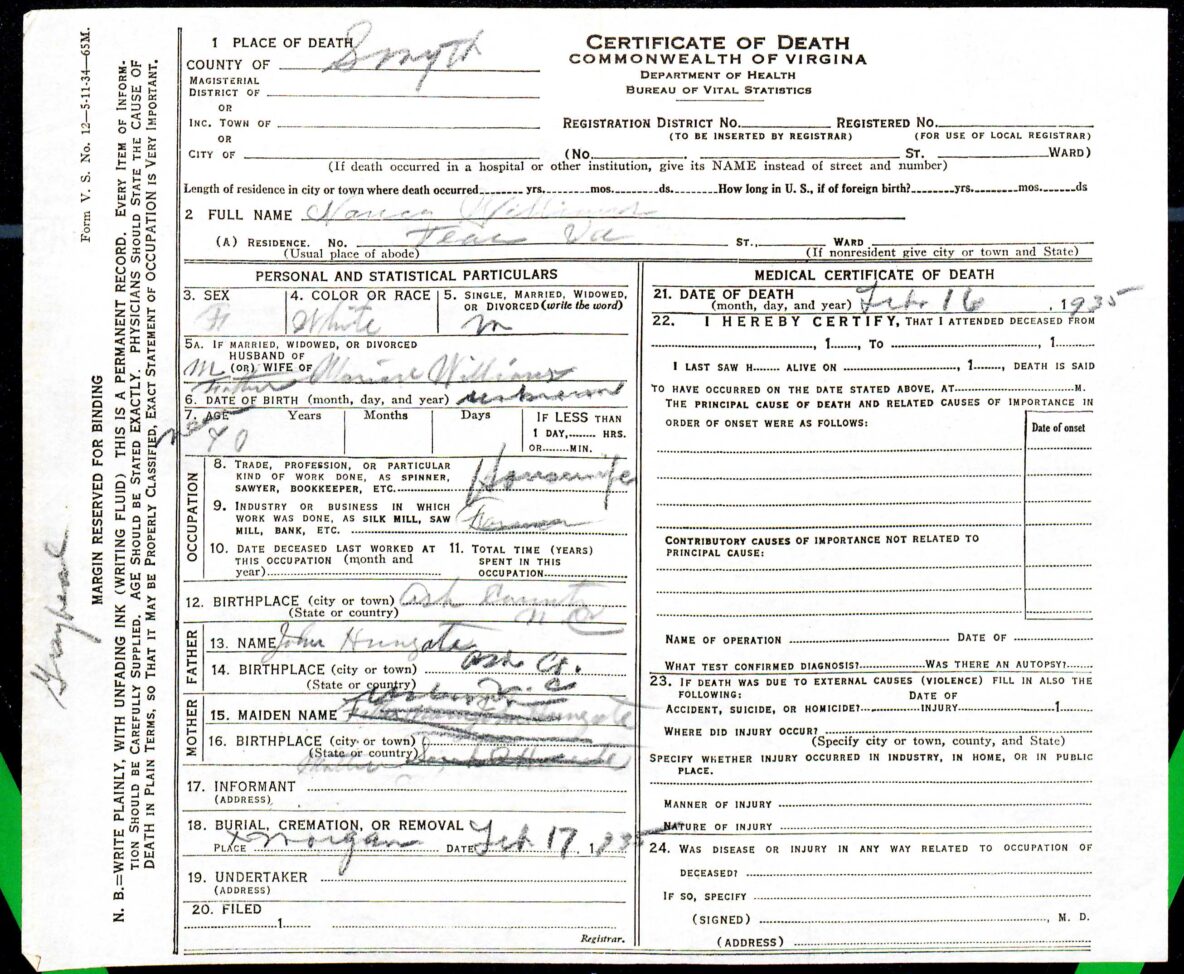 Form V. S. No. 12—5-11-34—65M.
MARGIN RESERVED FOR BINDING
N. B.=WRITE PLAINLY, WITH UNFADING INK (WRITING FLUID) THIS IS A PERMANENT RECORD. EVERY ITEM OF INFORM-
TION SHOULD BE CAREFULLY SUPPLIED. AGE SHOULD BE STATED EXACTLY. PHYSICIANS SHOULD STATE THE CAUSE OF
DEATH IN PLAIN TERMS, SO THAT IT MAY BE PROPERLY CLASSIFIED. EXACT STATEMENT OF OCCUPATION IS VERY IMPORTANT.
CERTIFICATE OF DEATH
COMMONWEALTH OF VIRGINA
DEPARTMENT OF HEALTH
BUREAU OF VITAL STATISTICS
1 PLACE OF DEATH
COUNTY OF Smyth
MAGISTERIAL
DISTRICT OF
OR
INC. TOWN OF
OR
CITY OF
REGISTRATION DISTRICT No. REGISTERED No.
(TO BE INSERTED BY REGISTRAR) (FOR USE OF LOCAL REGISTRAR)
(No. ST. WARD)
(If death occurred in a hospital or other institution, give its NAME instead of street and number)
Length of residence in city or town where death occurred yrs. mos. ds. How long in U. S., if of foreign birth? yrs. mos. ds
2 FULL NAME Nancy Williams
(A) RESIDENCE. No. Teas Va ST., WARD
(Usual place of abode) (If nonresident give city or town and State)
PERSONAL AND STATISTICAL PARTICULARS
3. SEX F
4. COLOR OR RACE White
5. SINGLE, MARRIED, WIDOWED,
OR DIVORCED (write the word)
m
5A. IF MARRIED, WIDOWED, OR DIVORCED
HUSBAND OF
(OR) WIFE OF Williams
6. DATE OF BIRTH (month, day, and year) unknown
7. AGE Years Months Days IF LESS THAN
1 DAY, HRS.
OR MIN.
OCCUPATION
8. TRADE, PROFESSION, OR PARTICULAR
KIND OF WORK DONE, AS SPINNER,
SAWYER, BOOKKEEPER, ETC. Housewife
9. INDUSTRY OR BUSINESS IN WHICH
WORK WAS DONE, AS SILK MILL, SAW
MILL, BANK, ETC.
10. DATE DECEASED LAST WORKED AT
THIS OCCUPATION (month and
year)
11. TOTAL TIME (YEARS)
SPENT IN THIS
OCCUPATION
12. BIRTHPLACE (city or town) Ash County
(State or country) N C
FATHER
13. NAME John Hungate
14. BIRTHPLACE (city or town) Ash Co.
(State or country) N. C
MOTHER
15. MAIDEN NAME Hungate
16. BIRTHPLACE (city or town)
(State or country)
17. INFORMANT
(ADDRESS)
18. BURIAL, CREMATION, OR REMOVAL
PLACE x Morgan DATE Feb 17, 1935
19. UNDERTAKER
(ADDRESS)
20. FILED
1
Registrar.
MEDICAL CERTIFICATE OF DEATH
21. DATE OF DEATH
(month, day, and year) Feb 16, 1935
22. I HEREBY CERTIFY, THAT I ATTENDED DECEASED FROM
, 1 , TO , 1
I LAST SAW H ALIVE ON , 1 , DEATH IS SAID
TO HAVE OCCURRED ON THE DATE STATED ABOVE, AT M.
THE PRINCIPAL CAUSE OF DEATH AND RELATED CAUSES OF IMPORTANCE IN
ORDER OF ONSET WERE AS FOLLOWS:
Date of onset
CONTRIBUTORY CAUSES OF IMPORTANCE NOT RELATED TO
PRINCIPAL CAUSE:
NAME OF OPERATION DATE OF
WHAT TEST CONFIRMED DIAGNOSIS? WAS THERE AN AUTOPSY?
23. IF DEATH WAS DUE TO EXTERNAL CAUSES (VIOLENCE) FILL IN ALSO THE
FOLLOWING: DATE OF
ACCIDENT, SUICIDE, OR HOMICIDE? INJURY 1
WHERE DID INJURY OCCUR?
(Specify city or town, county, and State)
SPECIFY WHETHER INJURY OCCURRED IN INDUSTRY, IN HOME, OR IN PUBLIC
PLACE.
MANNER OF INJURY
NATURE OF INJURY
24. WAS DISEASE OR INJURY IN ANY WAY RELATED TO OCCUPATION OF
DECEASED?
IF SO, SPECIFY
(SIGNED) , M. D.
(ADDRESS)